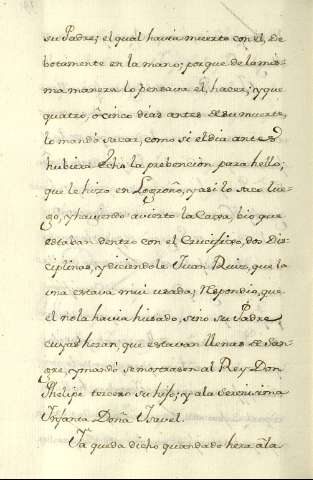 su Padre; el qual havia muerto con el, De
botamente en la mano; porque de la mis-
ma manera lo pensava el, hacer; y que
quatro, ô cinco dias antes de su muerte,
lo mandó sacar, como si el dia antes
hubiera echo la prebencion para hello;
que le hizo en Logroño, y asi lo saco lue-
go, y haviendo avierto la Caxa, bio que
estaban dentro con el Crucifixo, dos Dis-
ciplinas, y diciendole Juan Ruiz, que la
una estava mui usada; Respondio, que
el nola havia husado, sino su Padre
cuyas heran, que estavan llenas de San-
gre, y mandó semostrasen al Rey Don
Phelipe tercero su hijo; y ala Serenisima
Infanta Doña Isavel.
Ya queda dicho quan dado hera âla